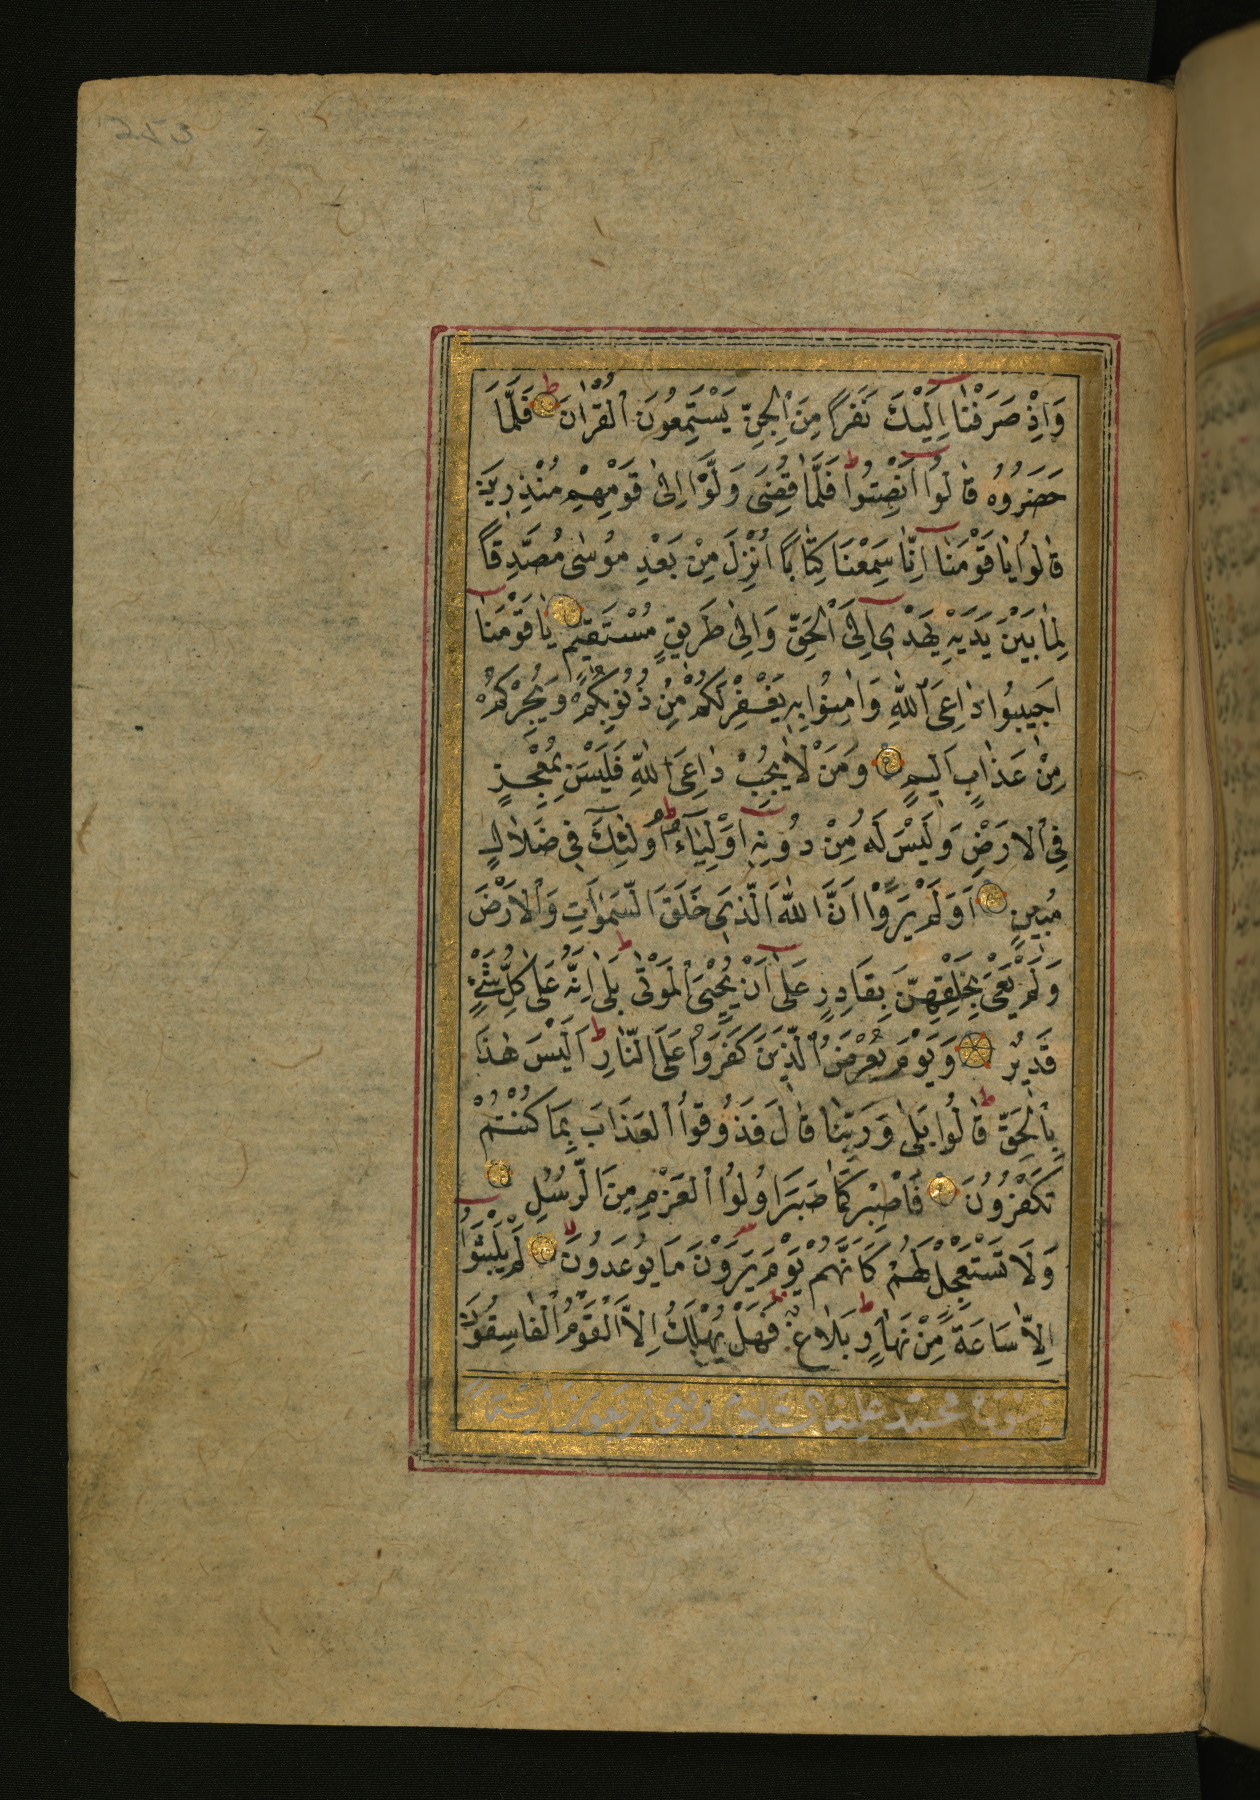 وَاِذْ صَرَفْنَا اِلَيْكَ نَفَرًا مِنَ الْجِنِّ يَسْتَمِعُونَ الْقُرْاٰنَ فَلَمَّا
حَضَرُوهُ قَالُوا اَنْصِتُوا فَلَمَّا قُضِىَ وَلَّوْا اِلٰى قَوْمِهِمْ مُنْذِرِينَ
قَالُوا يَا قَوْمَنَا اِنَّا سَمِعْنَا كِتَابًا اُنْزِلَ مِنْ بَعْدِ مُوسٰى مُصَدِّقًا
لِمَا بَيْنَ يَدَيْهِ يَهْدِى اِلَى الْحَقِّ وَاِلٰى طَرِيقٍ مُسْتَقِيمٍ يَا قَوْمَنَا
اَجِيبُوا دَاعِىَ اللّٰهِ وَاٰمِنُوا بِهِ يَغْفِرْ لَكُمْ مِنْ ذُنُوبِكُمْ وَيُجِرْكُمْ
مِنْ عَذَابٍ اَلِيمٍ وَمَنْ لَا يُجِبْ دَاعِىَ اللّٰهِ فَلَيْسَ بِمُعْجِزٍ
فِى الْاَرْضِ وَلَيْسَ لَهُ مِنْ دُونِهِ اَوْلِيَاءُ اُولٰئِكَ فِى ضَلَالٍ
مُبِينٍ اَوَلَمْ يَرَوْا اَنَّ اللّٰهَ الَّذِى خَلَقَ السَّمٰوَاتِ وَالْاَرْضَ
وَلَمْ يَعْىَ بِخَلْقِهِنَّ بِقَادِرٍ عَلٰى اَنْ يُحْيِىَ الْمَوْتٰى بَلٰى اِنَّهُ عَلٰى كُلِّ شَىْءٍ
قَدِيرٌ وَيَوْمَ يُعْرَضُ الَّذِينَ كَفَرُوا عَلَى النَّارِ اَلَيْسَ هٰذَا
بِالْحَقِّ قَالُوا بَلٰى وَرَبِّنَا قَالَ فَذُوقُوا الْعَذَابَ بِمَا كُنْتُمْ
تَكْفُرُونَ فَاصْبِرْ كَمَا صَبَرَ اُولُوا الْعَزْمِ مِنَ الرُّسُلِ
وَلَا تَسْتَعْجِلْ لَهُمْ كَاَنَّهُمْ يَوْمَ يَرَوْنَ مَا يُوعَدُونَ لَمْ يَلْبَثُوا
اِلَّا سَاعَةً مِنْ نَهَارٍ بَلَاغٌ فَهَلْ يُهْلَكُ اِلَّا الْقَوْمُ الْفَاسِقُونَ
سورة محمد عليه السلام وهى اربعون اية